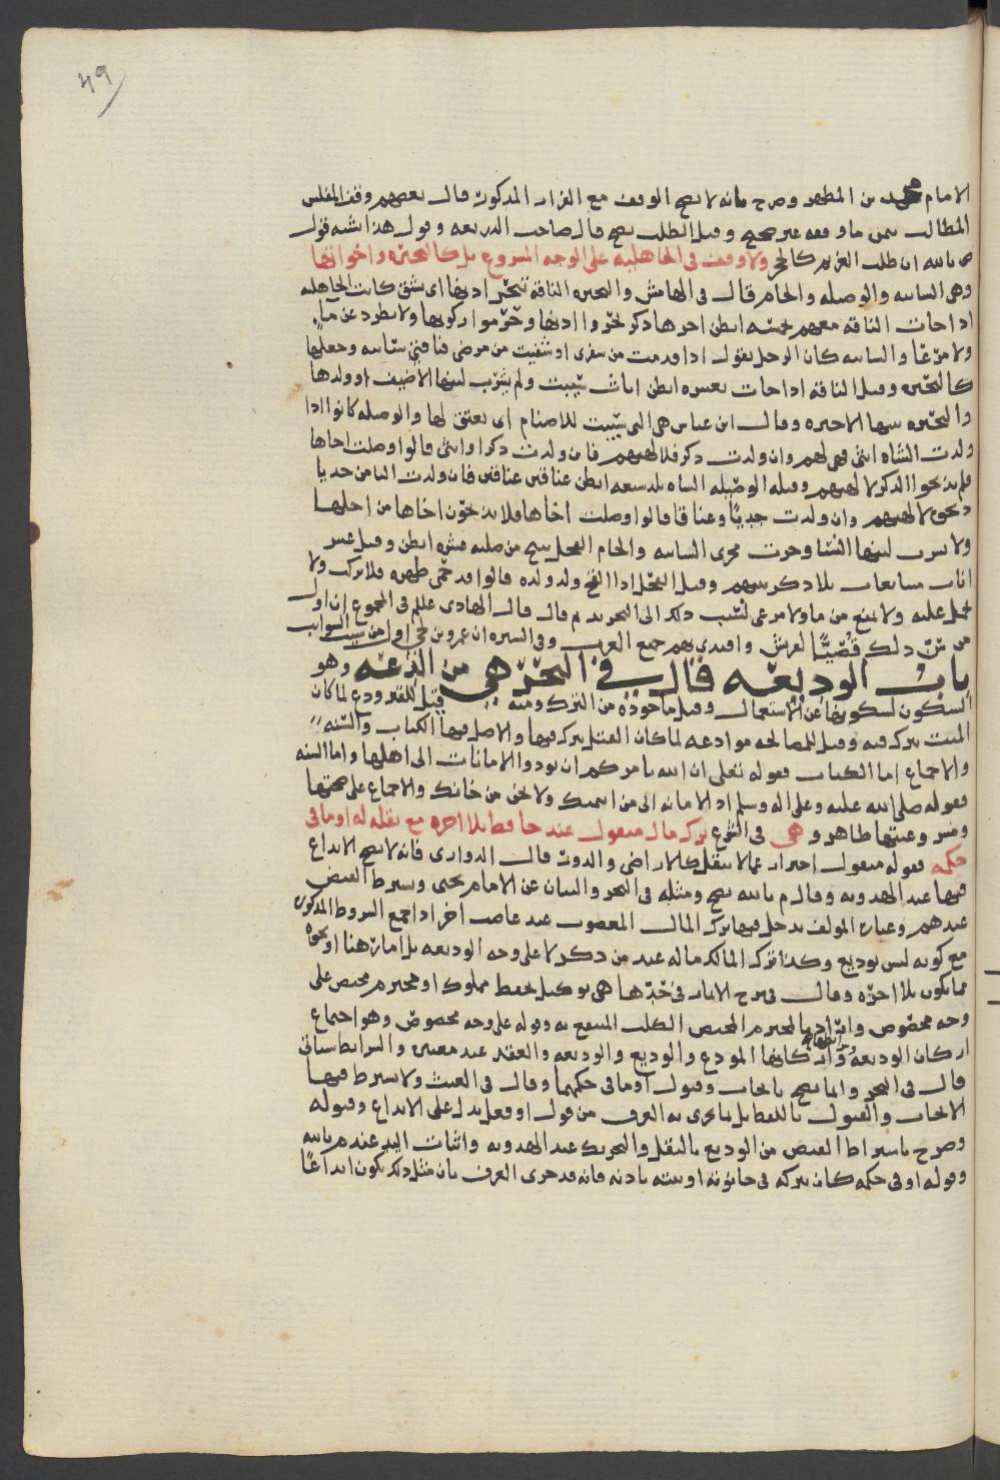 49
الامام محمد بن المطهر وصرح بانه لا يصح الوقف مع القرار المذكورة قال بعضهم وقف المفلس
المطالب بثمن ما وقفه غير صحيح وقبل الطلب يصح قال صاحب الذريعه وقول هذا اشبه بقول
م بالله ان طلب الغريم كالحجر ولا وقف في الجاهليه على الوجه المشروع بل كالبحيره واخواتها
وهي السائبه والوصيله والحام قال في الهامش والبحيره الناقه تبحر اذنها اى يشق كانت الجاهليه
اذا جاءت الناقه معهم بخمسه ابطن اخرها ذكر بحروا اذنها وحرموا ركوبها ولا يطرد عن ماء
ولا مرعا والسائبه كان الرجل يقول اذا قدمت من سفرى او شفيت من مرضى فناقتي سائبه وجعلها
كالبحيره وقيل الناقه اذا جاءت بعشره ابطن اناث سيبت ولم يشرب لبنها الا ضيف او ولدها
والبحيره بنتها الاخيره وقال ابن عباس هى التى تسيبت للاصنام اى تعتق لها والوصيله كانوا اذا
ولدت الشاه انثى فهى لهم وان ولدت ذكر فلالهتهم فان ولدت ذكرا وانثى قالوا وصلت اخاها
فلم يذبحوا الذكر لالهتهم وقيله الوصيله الشاه تلد سبعه ابطن عناقين عناقين فان ولدت الثامن جديا
ذبحوه لالهتهم وان ولدت جديًا وعناقا قالوا وصلت اخاها فلا يذبحون اخاها من اجلها
ولا يشرب لبنها النسا وجرت مجرى السائبه والحام الفحل ينتج من صلبه عشره ابطن وقيل عشر
اناث متتابعات بلا ذكر بينهم وقيل الفحل اذا القح ولد ولده قالوا قد حمى ظهره فلا يركب ولا
يحمل عليه ولا يمنع من ماء ولا مرعى لسبب ذلك الى النحو ثم قال قال الهادى علم في المجموع ان اول
من سن ذلك قصيًّا لقريش واقتدى بهم جميع العرب وفي السيره ان عمرو بن لحي اول من سيب السوايب
باب الوديعه قال في البحر هي من الدعه وهو
السكون لسكونها عن الاستعمال وقيل ماخوذه من الترك ومنه قيل للقبر ودع لما كان
الميت يترك فيه وقيل للمصالحه موادعه لما كان القتل يترك فيها والاصل فيها الكتاب والسنه
والاجماع اما الكتاب فقوله تعلى ان الله يامركم ان تودوا الامانات الى اهلها واما السنه
فقوله صلى الله عليه وعلى اله وسلم اد الامانه الى من ائتمنك ولا تخن من خانك والاجماع على صحتها
وشرعيتها ظاهر وهي في الشرع ترك مال منقول عند حافظ بلا اجره مع نقله له او ما في
حكمه فقوله منقول احتراز عما لا ينقل كالاراضى والدور قال الدوارى فانه لا يصح الايداع
فيها عند الهدويه وقال م بالله يصح ومثله في البحر والبيان عن الامام يحيى وشرط القبض
عندهم وعبارة المولف يدخل فيها ترك المال المغصوب عند غاصب اخر اذا جمع الشروط المذكوره
مع كونه ليس بوديع وكذا ترك المالك ماله عند من ذكر لا على وجه الوديعه بل اماره هنا او نحوه
مما يكون بلا اجره وقال في شرح الاثمار في حدّها هى توكيل بحفظ مملوك او محترم مختص على
وجه مخصوص واراد بالمحترم المختص الكلب المنتفع به وقوله على وجه مخصوص وهو اجتماع
اركان الوديعه واركانها المودع والوديع والوديعه والعقد عند معتبره والشرائط ستاتى
قال في البحر وانما تصح بايجاب وقبول او ما في حكمهما وقال في الغيث ولا يشترط فيها
الايجاب والقبول باللفظ بل ما جرى به العرف من قول او فعل يدل على الايداع وقبوله
وصرح باشتراط القبض من الوديع بالنقل والتحويل عند الهدويه واثبات اليد عند م بالله
وقوله او في حكمه كان يتركه في حانوته او بيته باذنه فانه قد جرى العرف بان مثل ذلك يكون ايداعًا